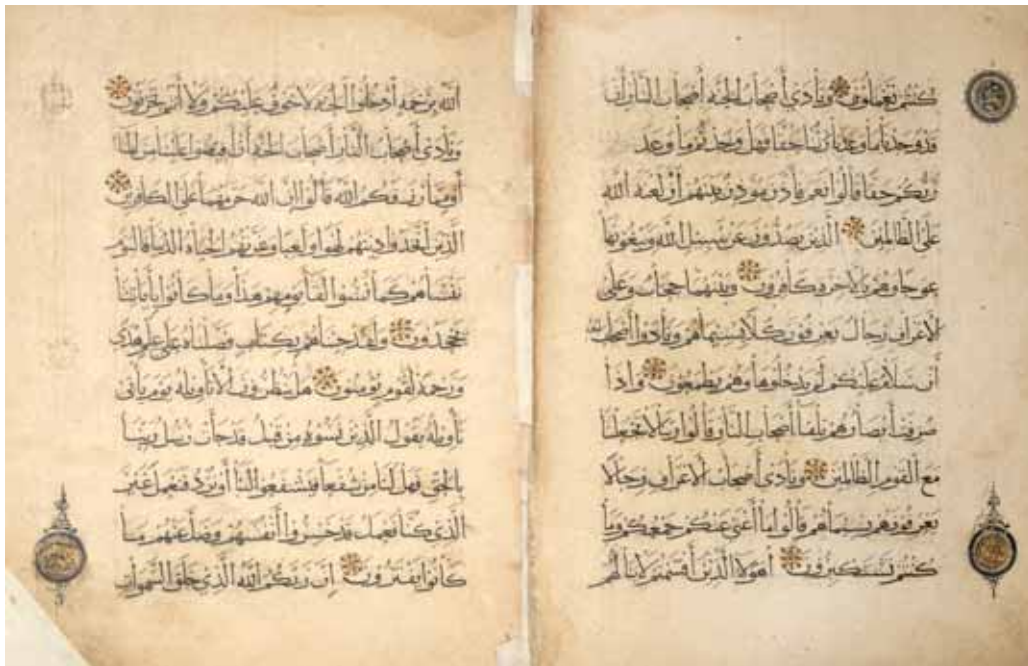 كنتم تعملون ونادى أصحاب الجنة أصحاب النار أن
قد وجدنا ما وعدنا ربنا حقا فهل وجدتم ما وعد
ربكم حقا قالوا نعم فأذن مؤذن بينهم أن لعنة الله
على الظالمين الذين يصدون عن سبيل الله ويبغونها
عوجا وهم بالآخرة كافرون وبينهما حجاب وعلى
الأعراف رجال يعرفون كلا بسيماهم ونادوا أصحاب الجنة
أن سلام عليكم لم يدخلوها وهم يطمعون وإذا
صرفت أبصارهم تلقاء أصحاب النار قالوا ربنا لا تجعلنا
مع القوم الظالمين ونادى أصحاب الأعراف رجالا
يعرفونهم بسيماهم قالوا ما أغنى عنكم جمعكم وما
كنتم تستكبرون أهؤلاء الذين أقسمتم لا ينالهم
الله برحمة أدخلوا الجنة لا خوف عليكم ولا أنتم تحزنون
ونادى أصحاب النار أصحاب الجنة أن أفيضوا علينا من الماء
أو مما رزقكم الله قالوا إن الله حرمهما على الكافرين
الذين اتخذوا دينهم لهوا ولعبا وغرتهم الحياة الدنيا فاليوم
ننساهم كما نسوا لقاء يومهم هذا وما كانوا بآياتنا
يجحدون ولقد جئناهم بكتاب فصلناه على علم هدى
ورحمة لقوم يؤمنون هل ينظرون إلا تأويله يوم يأتي
تأويله يقول الذين نسوه من قبل قد جاءت رسل ربنا
بالحق فهل لنا من شفعاء فيشفعوا لنا أو نرد فنعمل غير
الذي كنا نعمل قد خسروا أنفسهم وضل عنهم ما
كانوا يفترون إن ربكم الله الذي خلق السموات